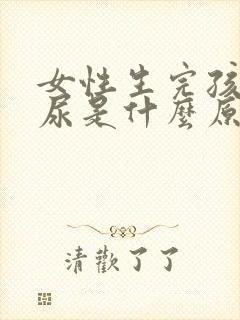 女性生完孩
尿是什麼原
清歡了了